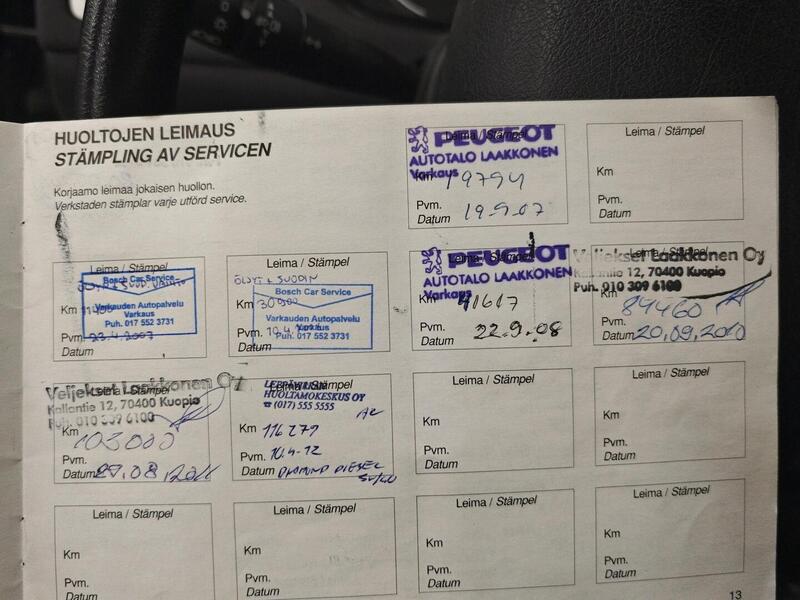 HUOLTOJEN LEIMAUS
STÄMPLING AV SERVICEN
Korjaamo leimaa jokaisen huollon.
Verkstaden stämplar varje utförd service.
Leima / Stämpel
PEUGEOT
AUTOTALO LAAKKONEN
Varkaus
Km 19794
Pvm.
Datum 19.9.07
Leima / Stämpel
Km
Pvm.
Datum
Leima / Stämpel
Bosch Car Service
Varkauden Autopalvelu
Varkaus
Puh. 017 552 3731
Km
Pvm. 23.4.2007
Datum
Leima / Stämpel
ÖLJYT + SUODIN
Bosch Car Service
Km 30900
Varkauden Autopalvelu
Varkaus
Puh. 017 552 3731
Pvm. 10.4.
Datum
Leima / Stämpel
PEUGEOT
AUTOTALO LAAKKONEN
Varkaus
Km 41617
Pvm. 22.9.08
Datum
Leima / Stämpel
Veljekset Laakkonen Oy
Kallantie 12, 70400 Kuopio
Puh. 010 309 6100
Km 84460
Pvm.
Datum 20.09.2010
Leima / Stämpel
Veljekset Laakkonen Oy
Kallantie 12, 70400 Kuopio
Puh. 010 309 6100
Km 103000
Pvm.
Datum 29.08.2011
Leima / Stämpel
LEPPÄVIRRAN
HUOLTAMOKESKUS OY
☎ (017) 555 5555
Km 116279
Pvm. 10.4-12
Datum DIAMOND DIESEL
5W/40
Leima / Stämpel
Km
Pvm.
Datum
Leima / Stämpel
Km
Pvm.
Datum
Leima / Stämpel
Km
Pvm.
Datum
Leima / Stämpel
Km
Pvm.
Datum
Leima / Stämpel
Km
Pvm.
Datum
Leima / Stämpel
Km
Pvm.
Datum
13